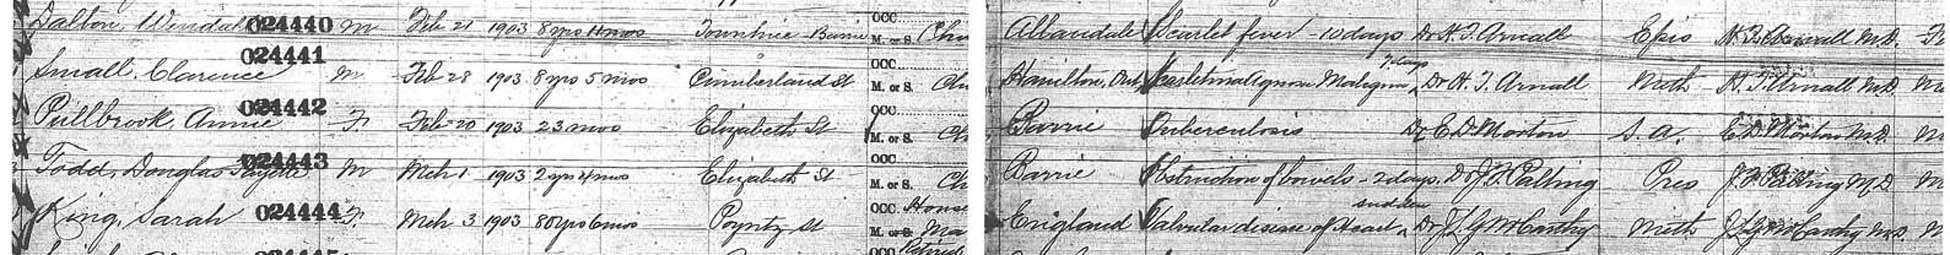 Dalton, Windal 024440 M Feb 21 1903 8 yrs 11 mos Townline Barrie OCC. M. or S. Chi Allandale Scarlet fever - 10 days Dr H. T. Arnall Epis H. T. Arnall M.D.
Small, Clarence 024441 M Feb 28 1903 8 yrs 5 mos Cumberland St OCC. M. or S. Ch Hamilton, Ont. Maligna 7 days Dr H. T. Arnall Meth H. T. Arnall M.D.
Pullbrook, Annie 024442 F Feb 20 1903 23 mos Elizabeth St OCC. M. or S. Ch Barrie Tuberculosis Dr E. D. Morton S. A. E. D. Morton M.D.
Todd, Douglas 024443 M Mch 1 1903 2 yrs 4 mos Elizabeth St OCC. M. or S. Ch Barrie Obstruction of bowels - 2 days. Dr J. F. Palling Pres J. F. Palling M.D.
King, Sarah 024444 F. Mch 3 1903 80 yrs 6 mos Poyntz St OCC. House M. or S. Ma England Valvular disease of Heart, sudden Dr J. L. G. McCarthy Meth J. L. G. McCarthy M.D.
024445 OCC. Retired